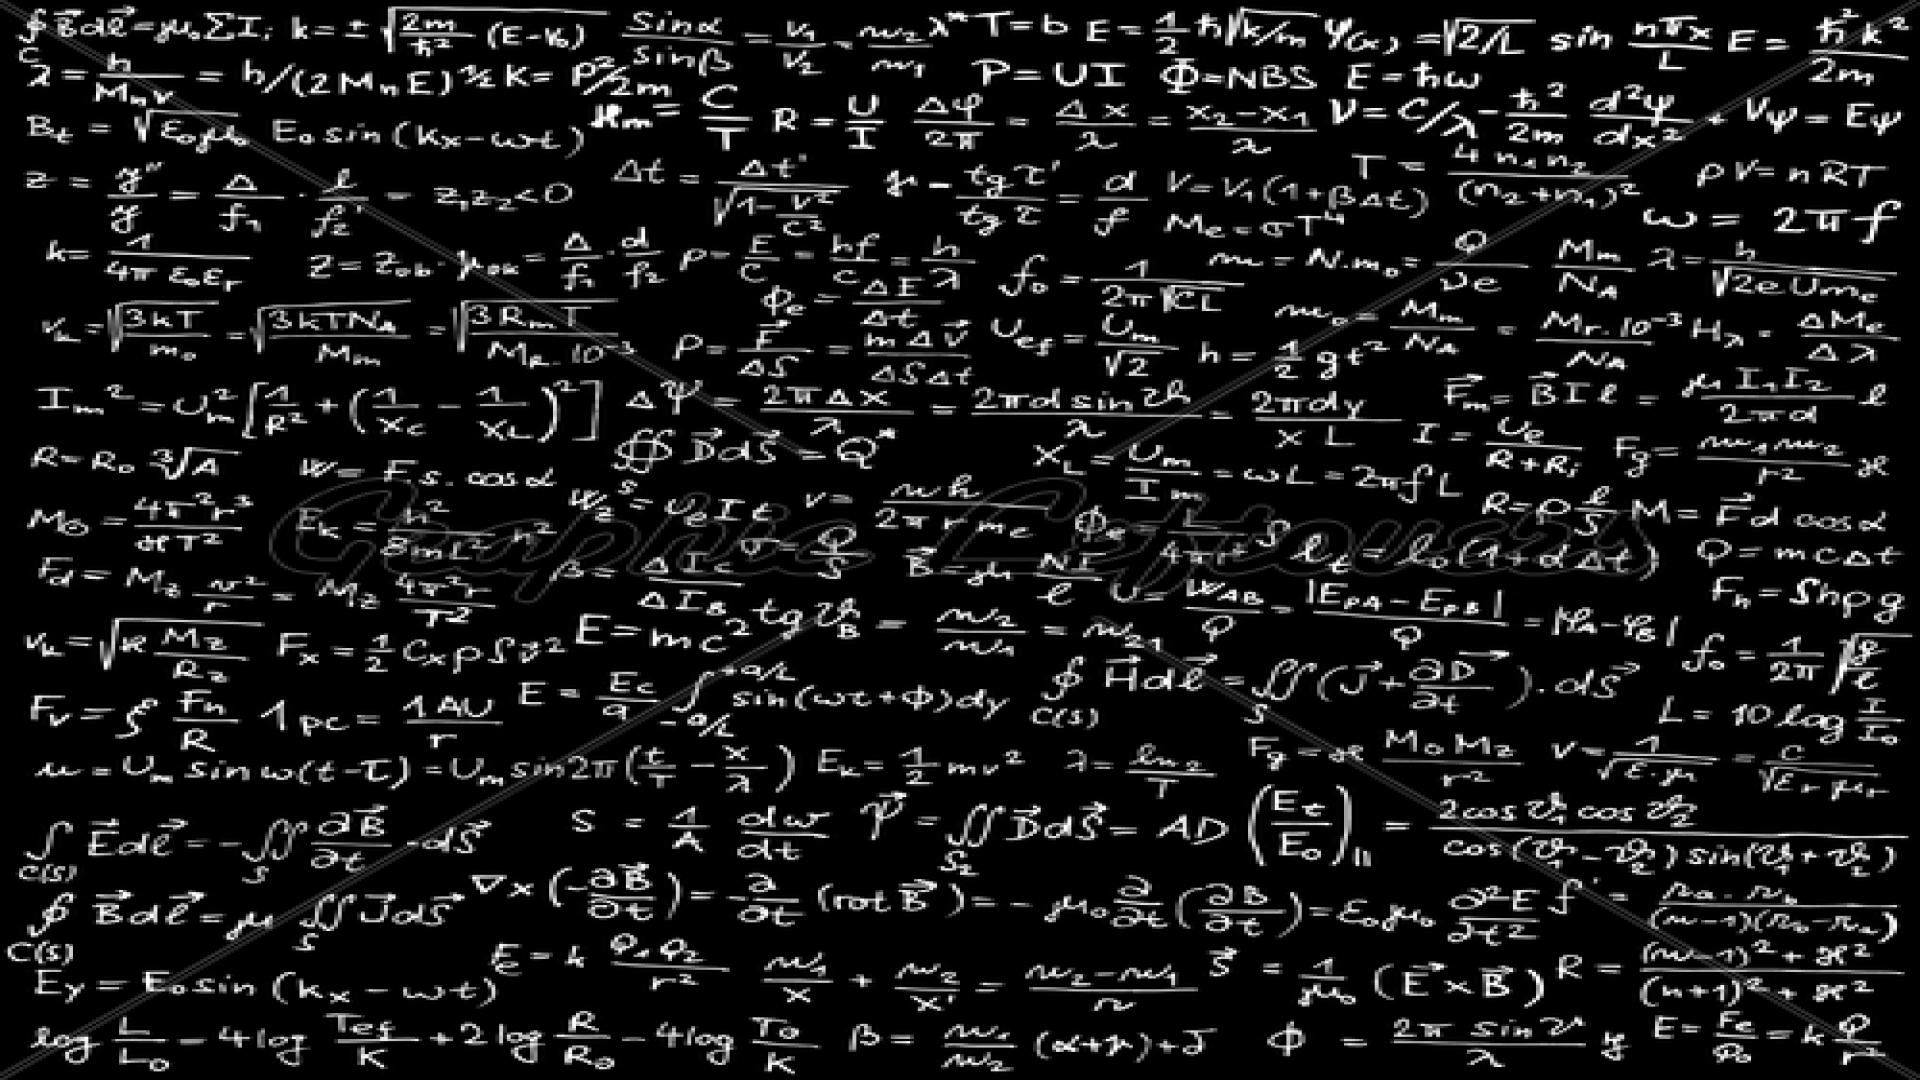 ∮_C B⃗dℓ⃗=μ₀ΣI; k=±√(2m/ħ²)(E-V₀) sinα/sinβ = v₁/v₂ = n₂/n₁ λ*T=b E=½ħ√k/m ψ(x)=√2/L sin nπx/L E=ħ²k²/2m
λ=h/Mₙv = h/(2MₙE)^½ K=p²/2m P=UI Φ=NBS E=ħω
Bt = √ε₀μ₀ E₀sin(kx-ωt) = C/T R=U/I Δφ/2π = Δx/λ = x₂-x₁/λ ν=C/λ -ħ²/2m d²ψ/dx² + Vψ=Eψ
z = y″/y = Δ/f₁ · ℓ/f₂′ - z₁z₂<0 Δt=Δt′/√1-v²/c² γ = tgτ′/tgτ = d/f V=V₁(1+βΔt) T=4n₁n₂/(n₂+n₁)² pV=nRT
Me=σT⁴ ω=2πf
k=1/4πε₀εr Z=Zob·γok=Δ/f₁·d/f₂ p=E/c=hf/c=h/λ f₀=1/2π√CL m=N.m₀=Q/νe Mm/NA λ=h/√2eUme
Φe=ΔE/Δt
vk=√3kT/m₀=√3kTNA/Mm=√3RmT/MR.10⁻³ p=F⃗/ΔS=mΔv⃗/ΔSΔt Uef=Um/√2 h=½gt² m₀=Mm/NA=Mr.10⁻³/NA Hλ=ΔMe/Δλ
Im²=Um²[1/R²+(1/Xc-1/XL)²] Δψ=2πΔx/λ=2πdsinϑ/λ=2πdy/xL F⃗m=B⃗Iℓ=μI₁I₂/2πd ℓ
R=R₀∛A W=F.s.cosα ∯_S D⃗dS⃗=Q* XL=Um/Im=ωL=2πfL I=Ue/R+Ri Fg=m₁m₂/r² ϰ
M☉=4π²r³/ϰT² Ek=h²/8mL² n² Wz=UeIt v=nh/2πrme Φe=L/4πr² S R=ρℓ/S M=F⃗dcosα
σ=Q/S B⃗=μNI/ℓ ℓt=ℓ₀(1+αΔt) Q=mcΔt
Fd=Mzv²/r=Mz4π²r/T² β=ΔIc/ΔIB U=WAB/Q=|EPA-EPB|/Q=|φA-φB| Fh=Shρg
vk=√ϰMz/Rz Fx=½CxρSv² E=mc² tgϑB=n₂/n₁=n₂₁ f₀=1/2π√g/ℓ
Fv=∫Fn/R 1pc=1AU/r E=Ec/q ∫_-a/2^+a/2 sin(ωt+Φ)dy ∮_C(S) H⃗dℓ⃗=∬_S(J⃗+∂D⃗/∂t).dS⃗ L=10log I/I₀
u=Umsinω(t-τ)=Umsin2π(t/T-x/λ) Ek=½mv² λ=ln2/T Fg=ϰM₀Mz/r² v=1/√ε.μ=c/√εrμr
∫_C(S) E⃗dℓ⃗=-∬_S ∂B⃗/∂t·dS⃗ S=1/A dw/dt Ψ⃗=∬_S₂ D⃗dS⃗=AD (Et/E₀)∥=2cosϑ₁cosϑ₂/cos(ϑ₁-ϑ₂)sin(ϑ₁+ϑ₂)
∮_C(S) B⃗dℓ⃗=μ∬_S J⃗dS⃗ ∇×(-∂B⃗/∂t)=-∂/∂t(rotB⃗)=-μ₀∂/∂t(∂B/∂t)=ε₀μ₀∂²E/∂t²
Ey=E₀sin(kx-ωt) Ee=kQ₁Q₂/r² n₁/x+n₂/x′=n₂-n₁/r S⃗=1/μ₀(E⃗×B⃗) R=(n-1)²+ϰ²/(n+1)²+ϰ²
log L/L₀-4log Tef/K+2log R/R₀-4log T₀/K β=n₁/n₂(α+γ)+δ Φ=2π sinϑ/λ y E=Fe/q₀=kQ/r²
Graphic Leftovers